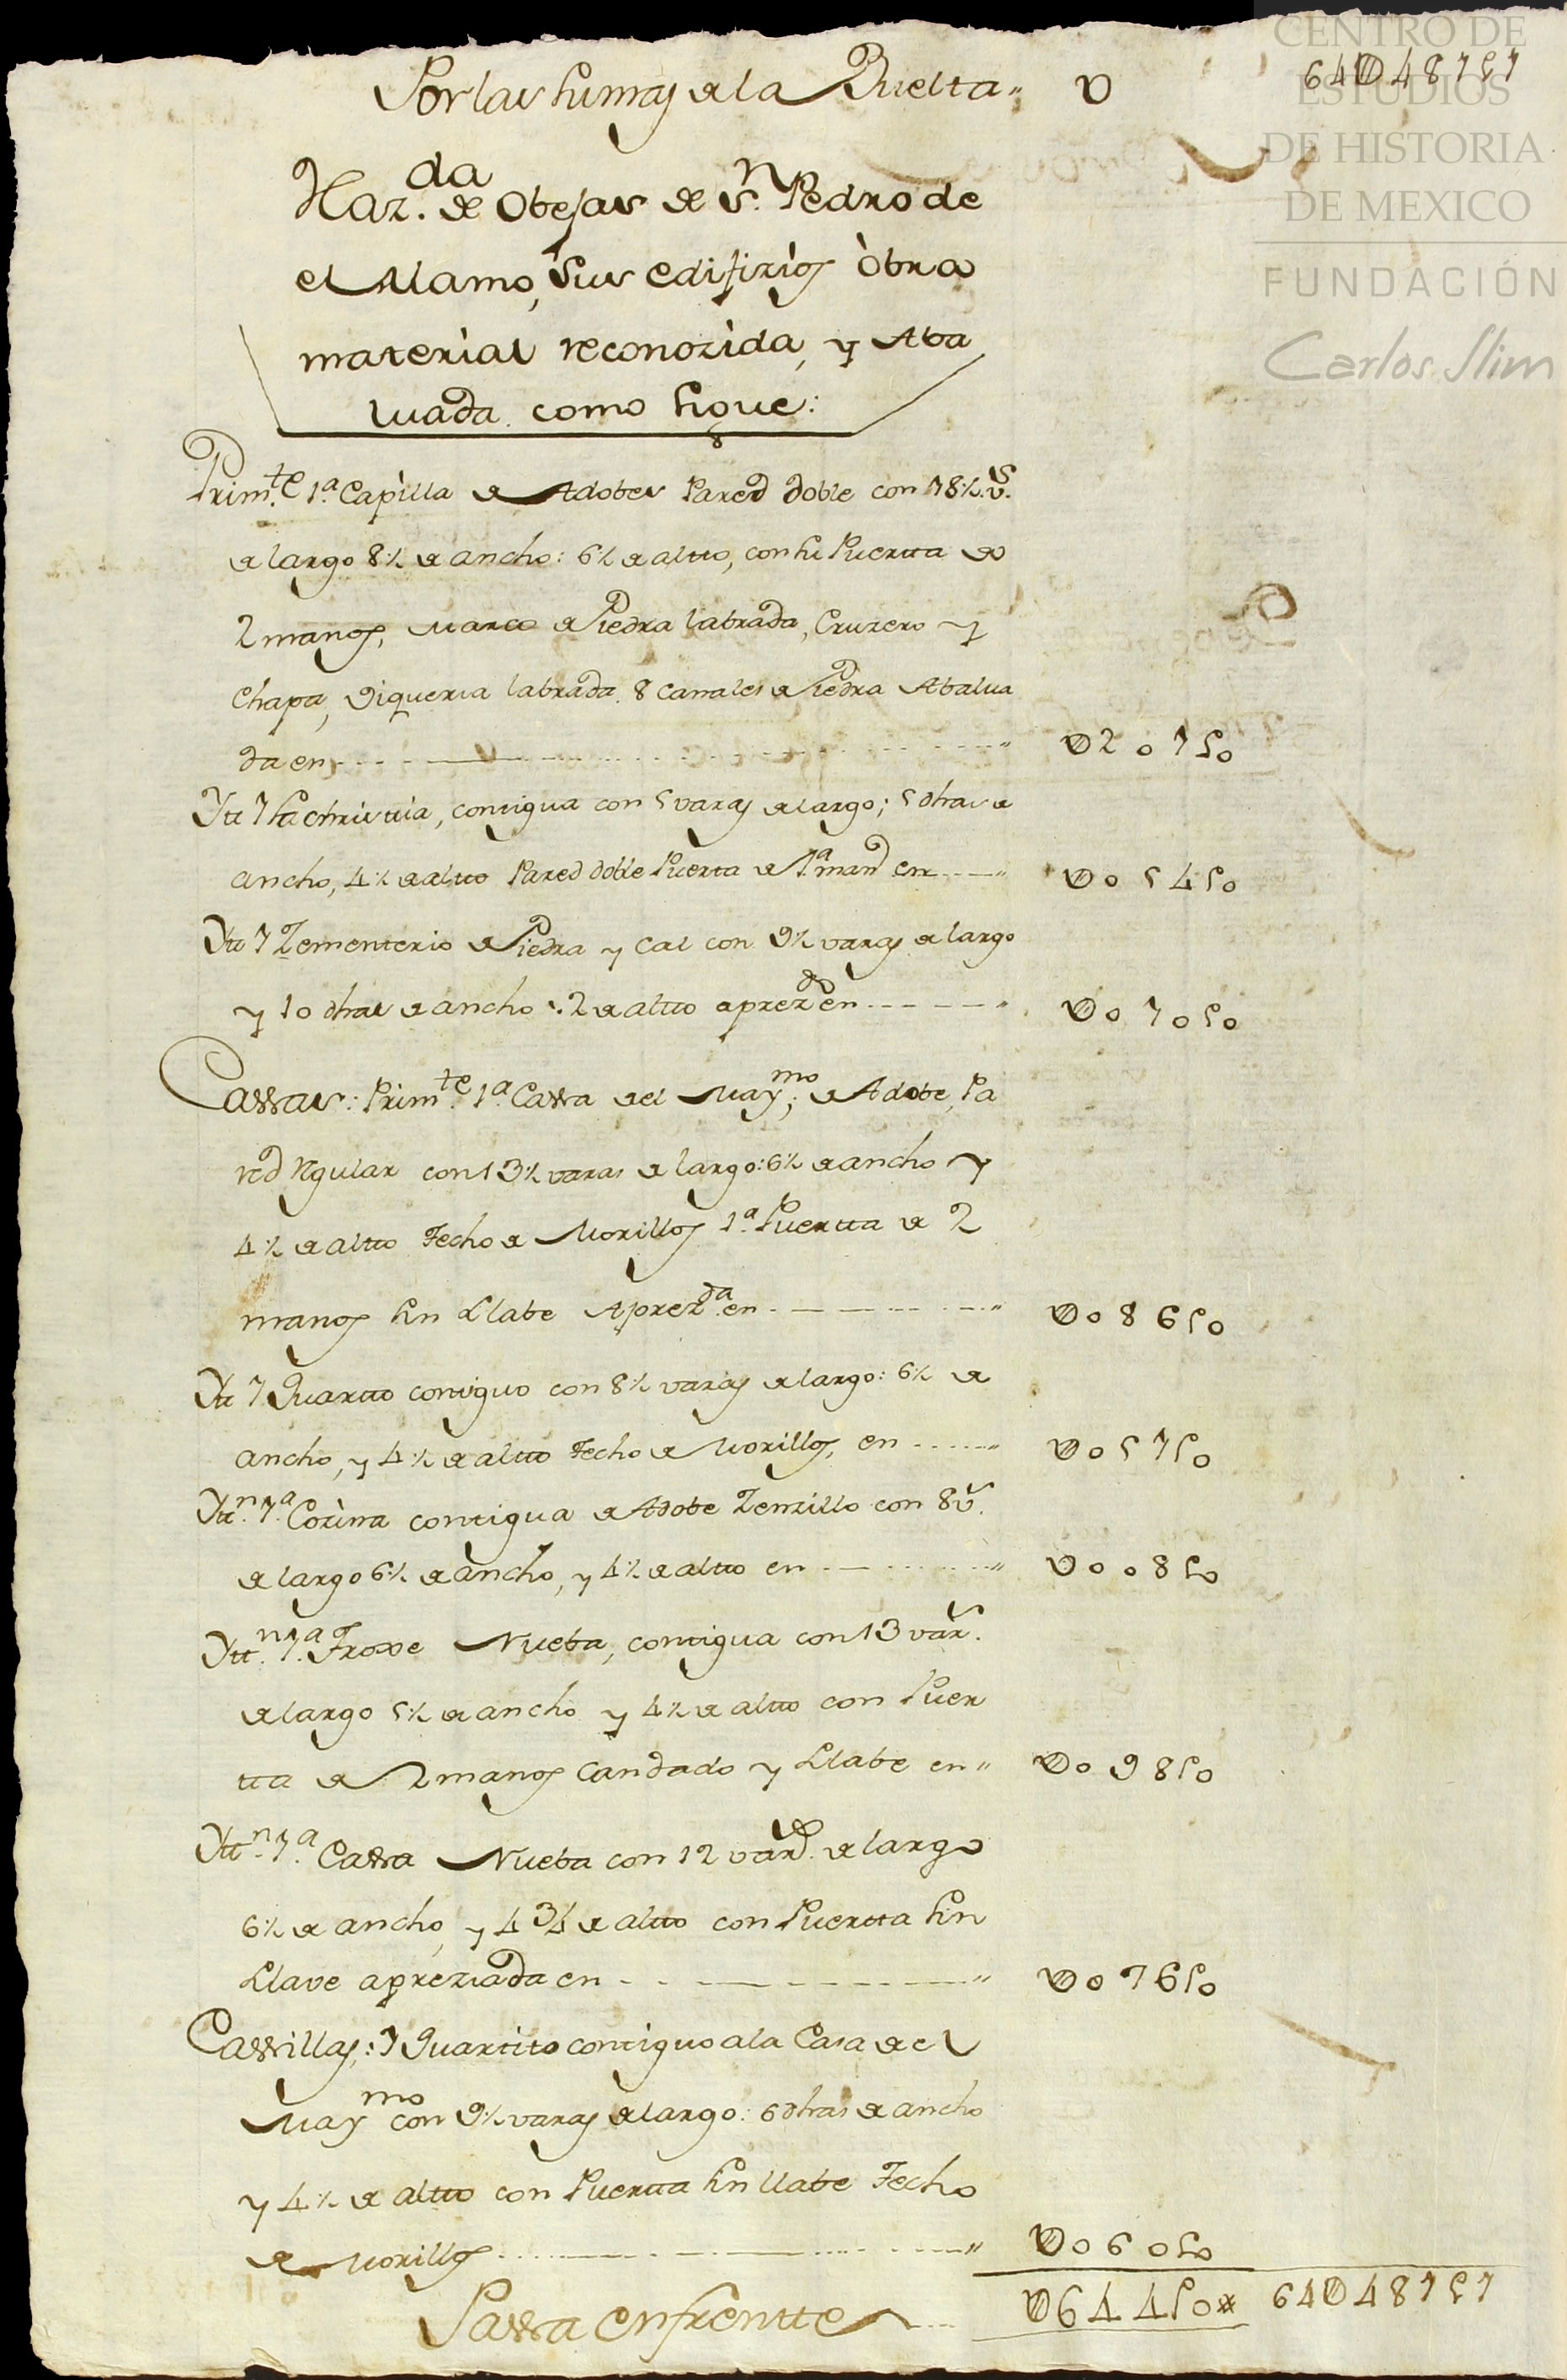 CENTRO DE
ESTUDIOS
DE HISTORIA
DE MEXICO
FUNDACIÓN
Carlos Slim
Por las sumas de la Buelta " U
Haz.da de Obejas de Sn. Pedro de
el Alamo, sus edifizios òbra
material reconozida, y Aba
luada como sigue:
Prim.te 1.a Capilla de Adobes Pared doble con 18½ v.s
de largo 8½ de ancho: 6½ de altto, con su Puertta de
2 manos, Marco de Piedra labrada, Cruzero y
Chapa, Vigueria labrada. 8 canales de Piedra Abalua
da en U2 0 7 50
Ytt 1 Sachristtia, contigua con 5 varas de largo; 5 dhas de
ancho, 4½ de altto Pared doble Puerta de 1a mano en U0 5 4 50
Ytt 1 Zementerio de Piedra y Cal con 9½ varas de largo
y 10 dhas de ancho: 2 de altto aprez.do en U0 7 0 50
Cassas: Prim.te 1.a Cassa del May.mo; de Adobe, Pa
red Rgular con 13½ varas de largo: 6½ de ancho y
4½ de altto Techo de Morillos 1.a Puertta de 2
manos sin Llabe Aprez.da en U0 8 6 50
Ytt 1 Quartto contiguo con 8½ varas de largo: 6½ de
ancho, y 4½ de altto Techo de Morillos, en U0 5 7 50
Ytt.n 1.a Cozina contigua de Adobe Zenzillo con 8 v.s
de largo 6½ de ancho, y 4½ de altto en U0 0 8 50
Ytt.n 1.a Troxe Nueba, contigua con 13 var.s
de largo 5½ de ancho y 4½ de altto con Puer
tta de 2 manos Candado y Llabe en " U0 9 8 50
Ytt.n 1.a Cassa Nueba con 12 var.s de largo
6½ de ancho, y 4 3/4 de altto con Puertta sin
Llave apreziada en U0 7 6 50
Cassillas: 1 Quartito contiguo a la Casa de el
May.mo con 9½ varas de largo: 6 dhas de ancho
y 4½ de altto con Puertta sin llabe Techo
de Morillos U0 6 0 50
Passa enfrentte